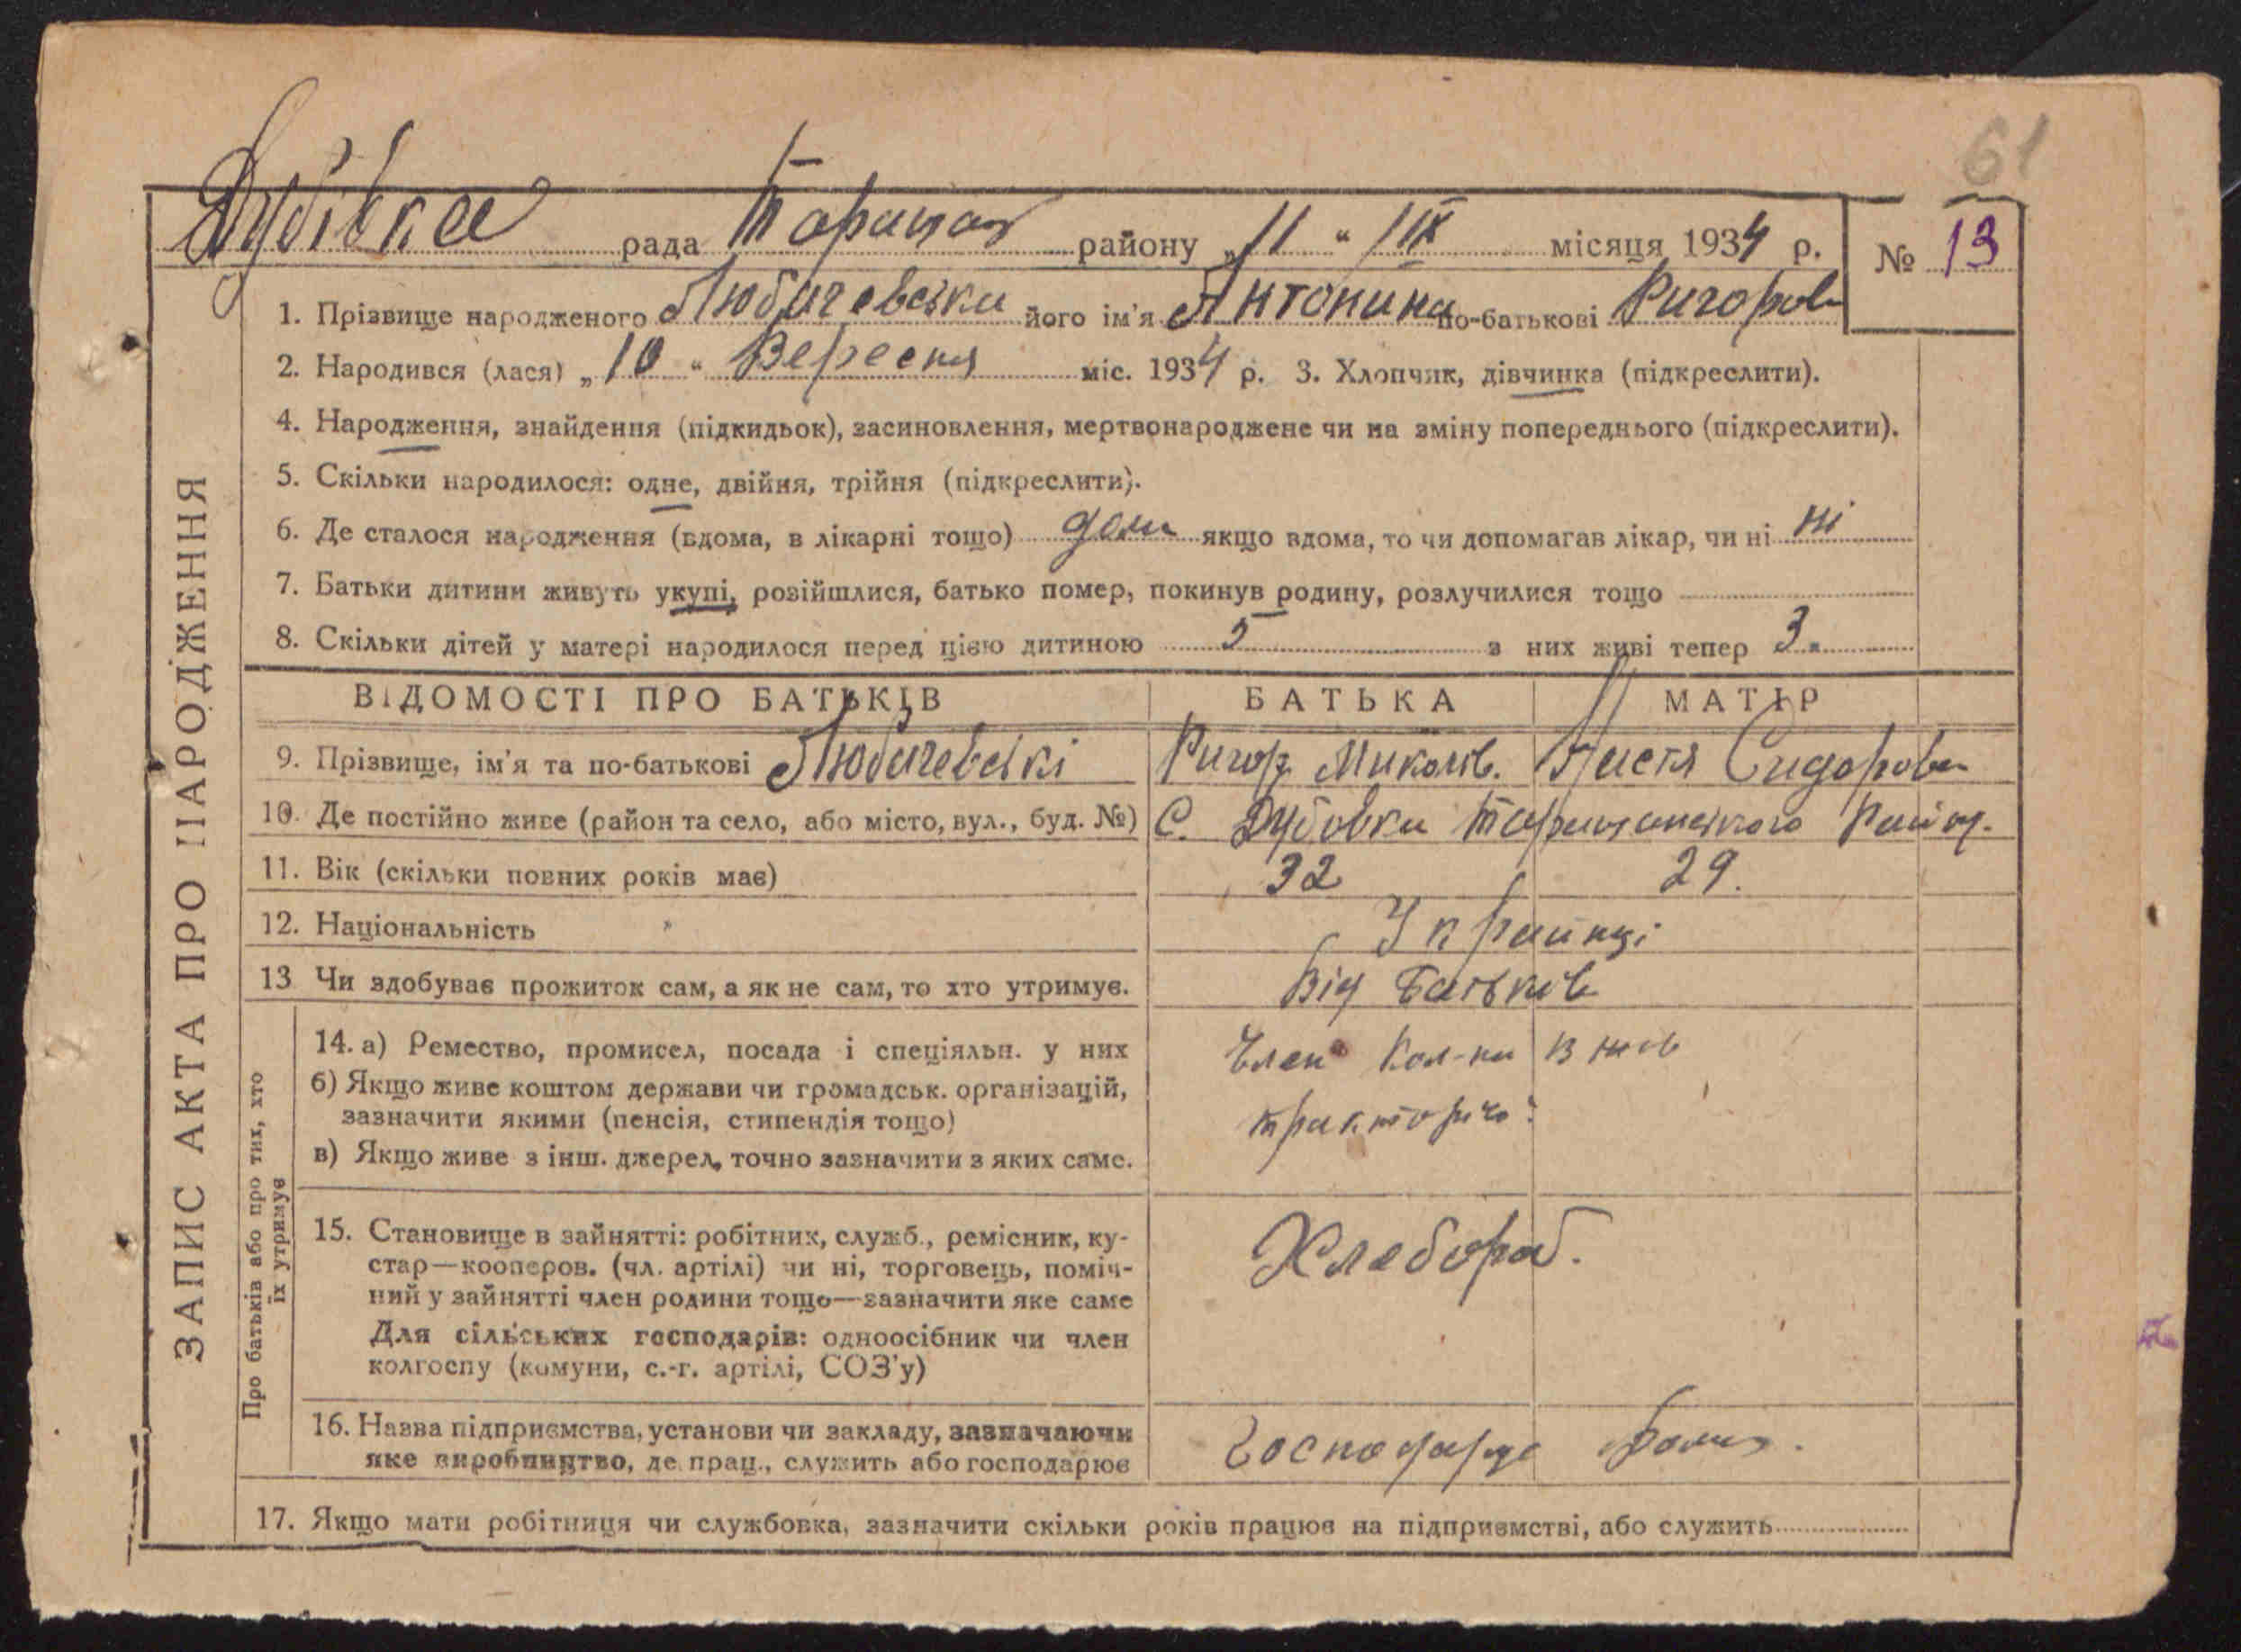 61
Дубівка рада район у „11“ ІХ місяця 1934 р. № 13
1. Прізвище народженого його ім'я Антонина по-батькові Ригоров
2. Народився (лася) „10“ Вересня міс. 1934 р. 3. Хлопчик, дівчинка (підкреслити).
4. Народження, знайдення (підкидьок), засиновлення, мертвонароджене чи на зміну попереднього (підкреслити).
5. Скільки народилося: одне, двійня, трійня (підкреслити).
6. Де сталося народження (вдома, в лікарні тощо) дома якщо вдома, то чи допомагав лікар, чи ні ні
7. Батьки дитини живуть укупі, розійшлися, батько помер, покинув родину, розлучилися тощо
8. Скільки дітей у матері народилося перед цією дитиною 5 з них живі тепер 3.
ВІДОМОСТІ ПРО БАТЬКІВ БАТЬКА МАТІР
9. Прізвище, ім'я та по-батькові Ригор Миколів. Настя Сидорова
10. Де постійно живе (район та село, або місто, вул., буд. №) С. Дубовка Таращанського
11. Вік (скільки повних років має) 32 29.
12. Національність Українці
13 Чи здобуває прожиток сам, а як не сам, то хто утримує. Від Батьків
14. а) Ремество, промисел, посада і спеціяльн. у них Член
б) Якщо живе коштом держави чи громадськ. організацій,
зазначити якими (пенсія, стипендія тощо)
в) Якщо живе з інш. джерел, точно зазначити з яких саме.
15. Становище в зайнятті: робітник, служб., ремісник, ку-
стар—кооперов. (чл. артілі) чи ні, торговець, поміч-
ний у зайнятті член родини тощо—зазначити яке саме
Для сільських господарів: одноосібник чи член
колгоспу (комуни, с.-г. артілі, СОЗ'у)
Хлебороб.
16. Назва підприємства, установи чи закладу, зазначаючи
яке виробництво, де прац., служить або господарює
17. Якщо мати робітниця чи службовка, зазначити скільки років працює на підприємстві, або служить
ЗАПИС АКТА ПРО НАРОДЖЕННЯ
Про батьків або про тих, хто
їх утримує